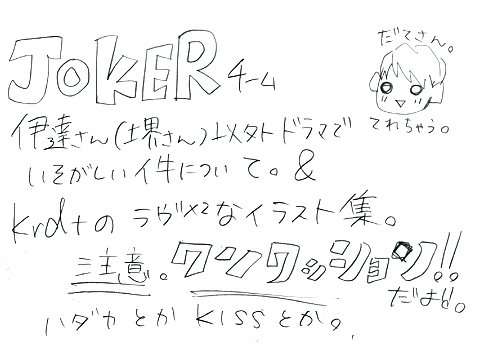 JOKERチーム
だてさん。
てれちゃう。
伊達さん(土界さん)以外ドラマで
いそがしい件について。&
krdtのラヴ×2なイラスト集。
注意。ワンクッション!!
だよ!!。
ハダカとかKissとか。